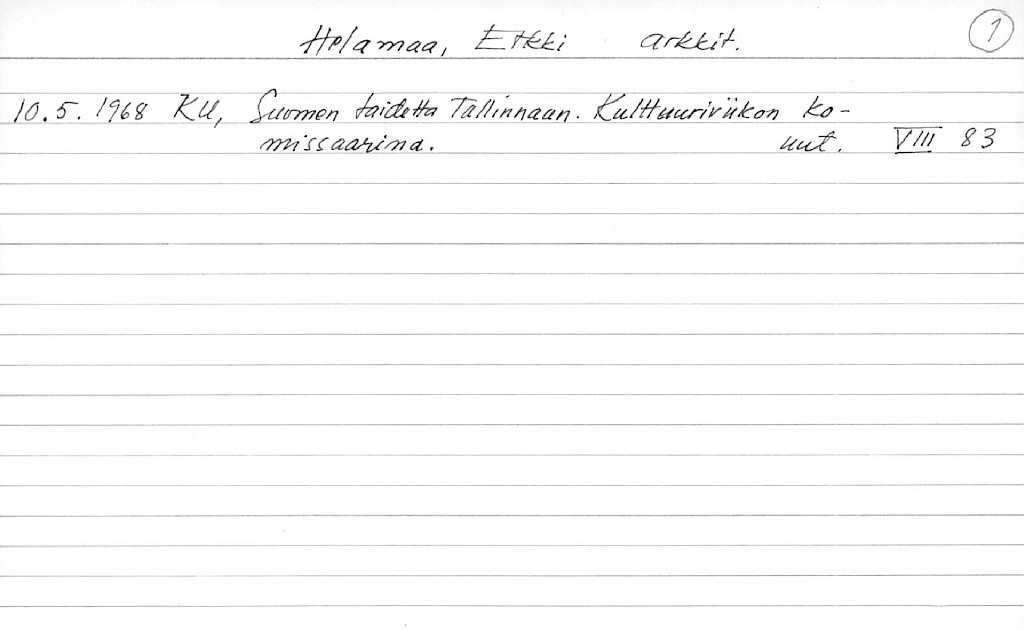 Helamaa, Erkki arkkit. 1
10.5.1968 KU, Suomen taidetta Tallinnaan. Kulttuuriviikon ko-
missaarina. uut. VIII 83